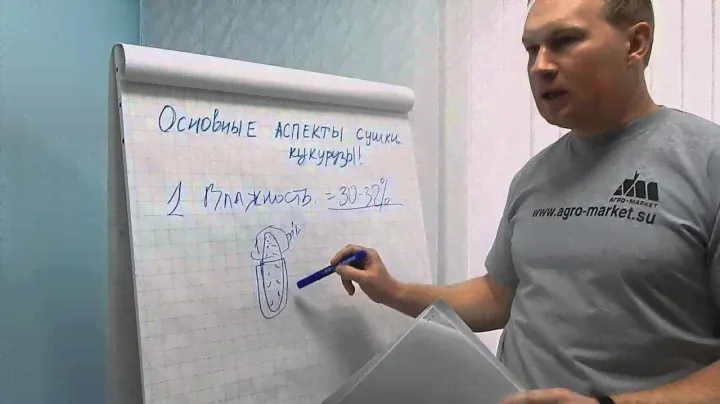 Основные аспекты сушки
кукурузы!
1 Влажность = 30-32%
АГРО-МАРКЕТ
www.agro-market.su